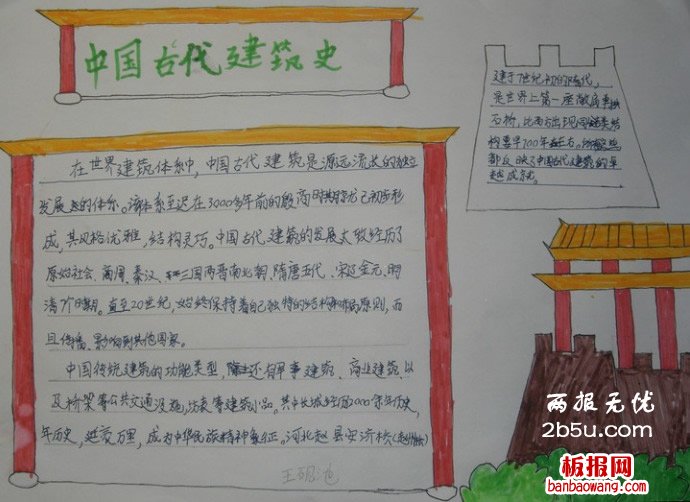 中国古代建筑史
在世界建筑体系中,中国古代建筑是源远流长的独立
发展的体系。该体系至迟在3000多年前的殷商时期就已初步形
成,其风格优雅,结构灵巧。中国古代建筑的发展大致经历了
原始社会、商周、秦汉、三国两晋南北朝、隋唐五代、宋辽金元、明
清7个时期。直至20世纪,始终保持着自己独特的结构和布局原则,而
且传播、影响到其他国家。
中国传统建筑的功能类型,除上还有军事建筑、商业建筑、以
及桥梁等公共交通设施,坊表等建筑小品。其中长城经历2000余年历史,
年历史,延袤万里,成为中华民族精神象征。河北赵县安济桥
建于7世纪初的隋代,
是世界上第一座敞肩单拱
石桥,比西方出现同类结
构要早700年左右。
都反映了中国古代建筑的卓
越成就。
两报无优
2b5u.com
板报网
banbaowang.com